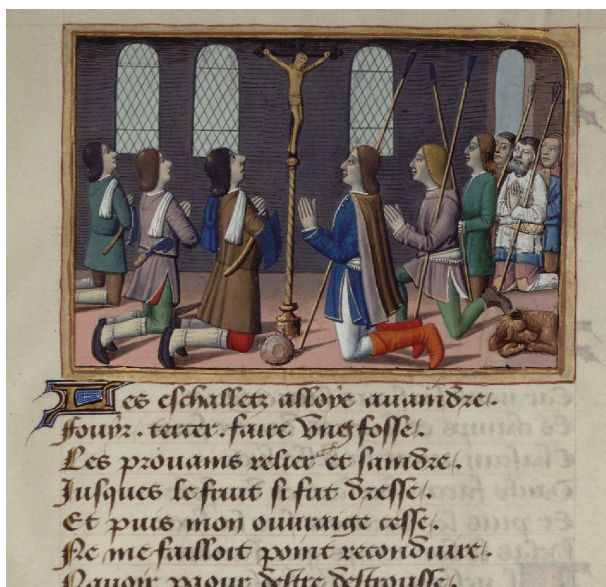 Les eschalletz alloye auaindre.
Fouyr. terrer. faire vng fosse.
Les prouains relier et saindre.
Iusques le fruit si fut dresse.
Et puis mon ouuraige cesse.
Ne me failloit point reconduire.
Nauoir paour destre destrousse.